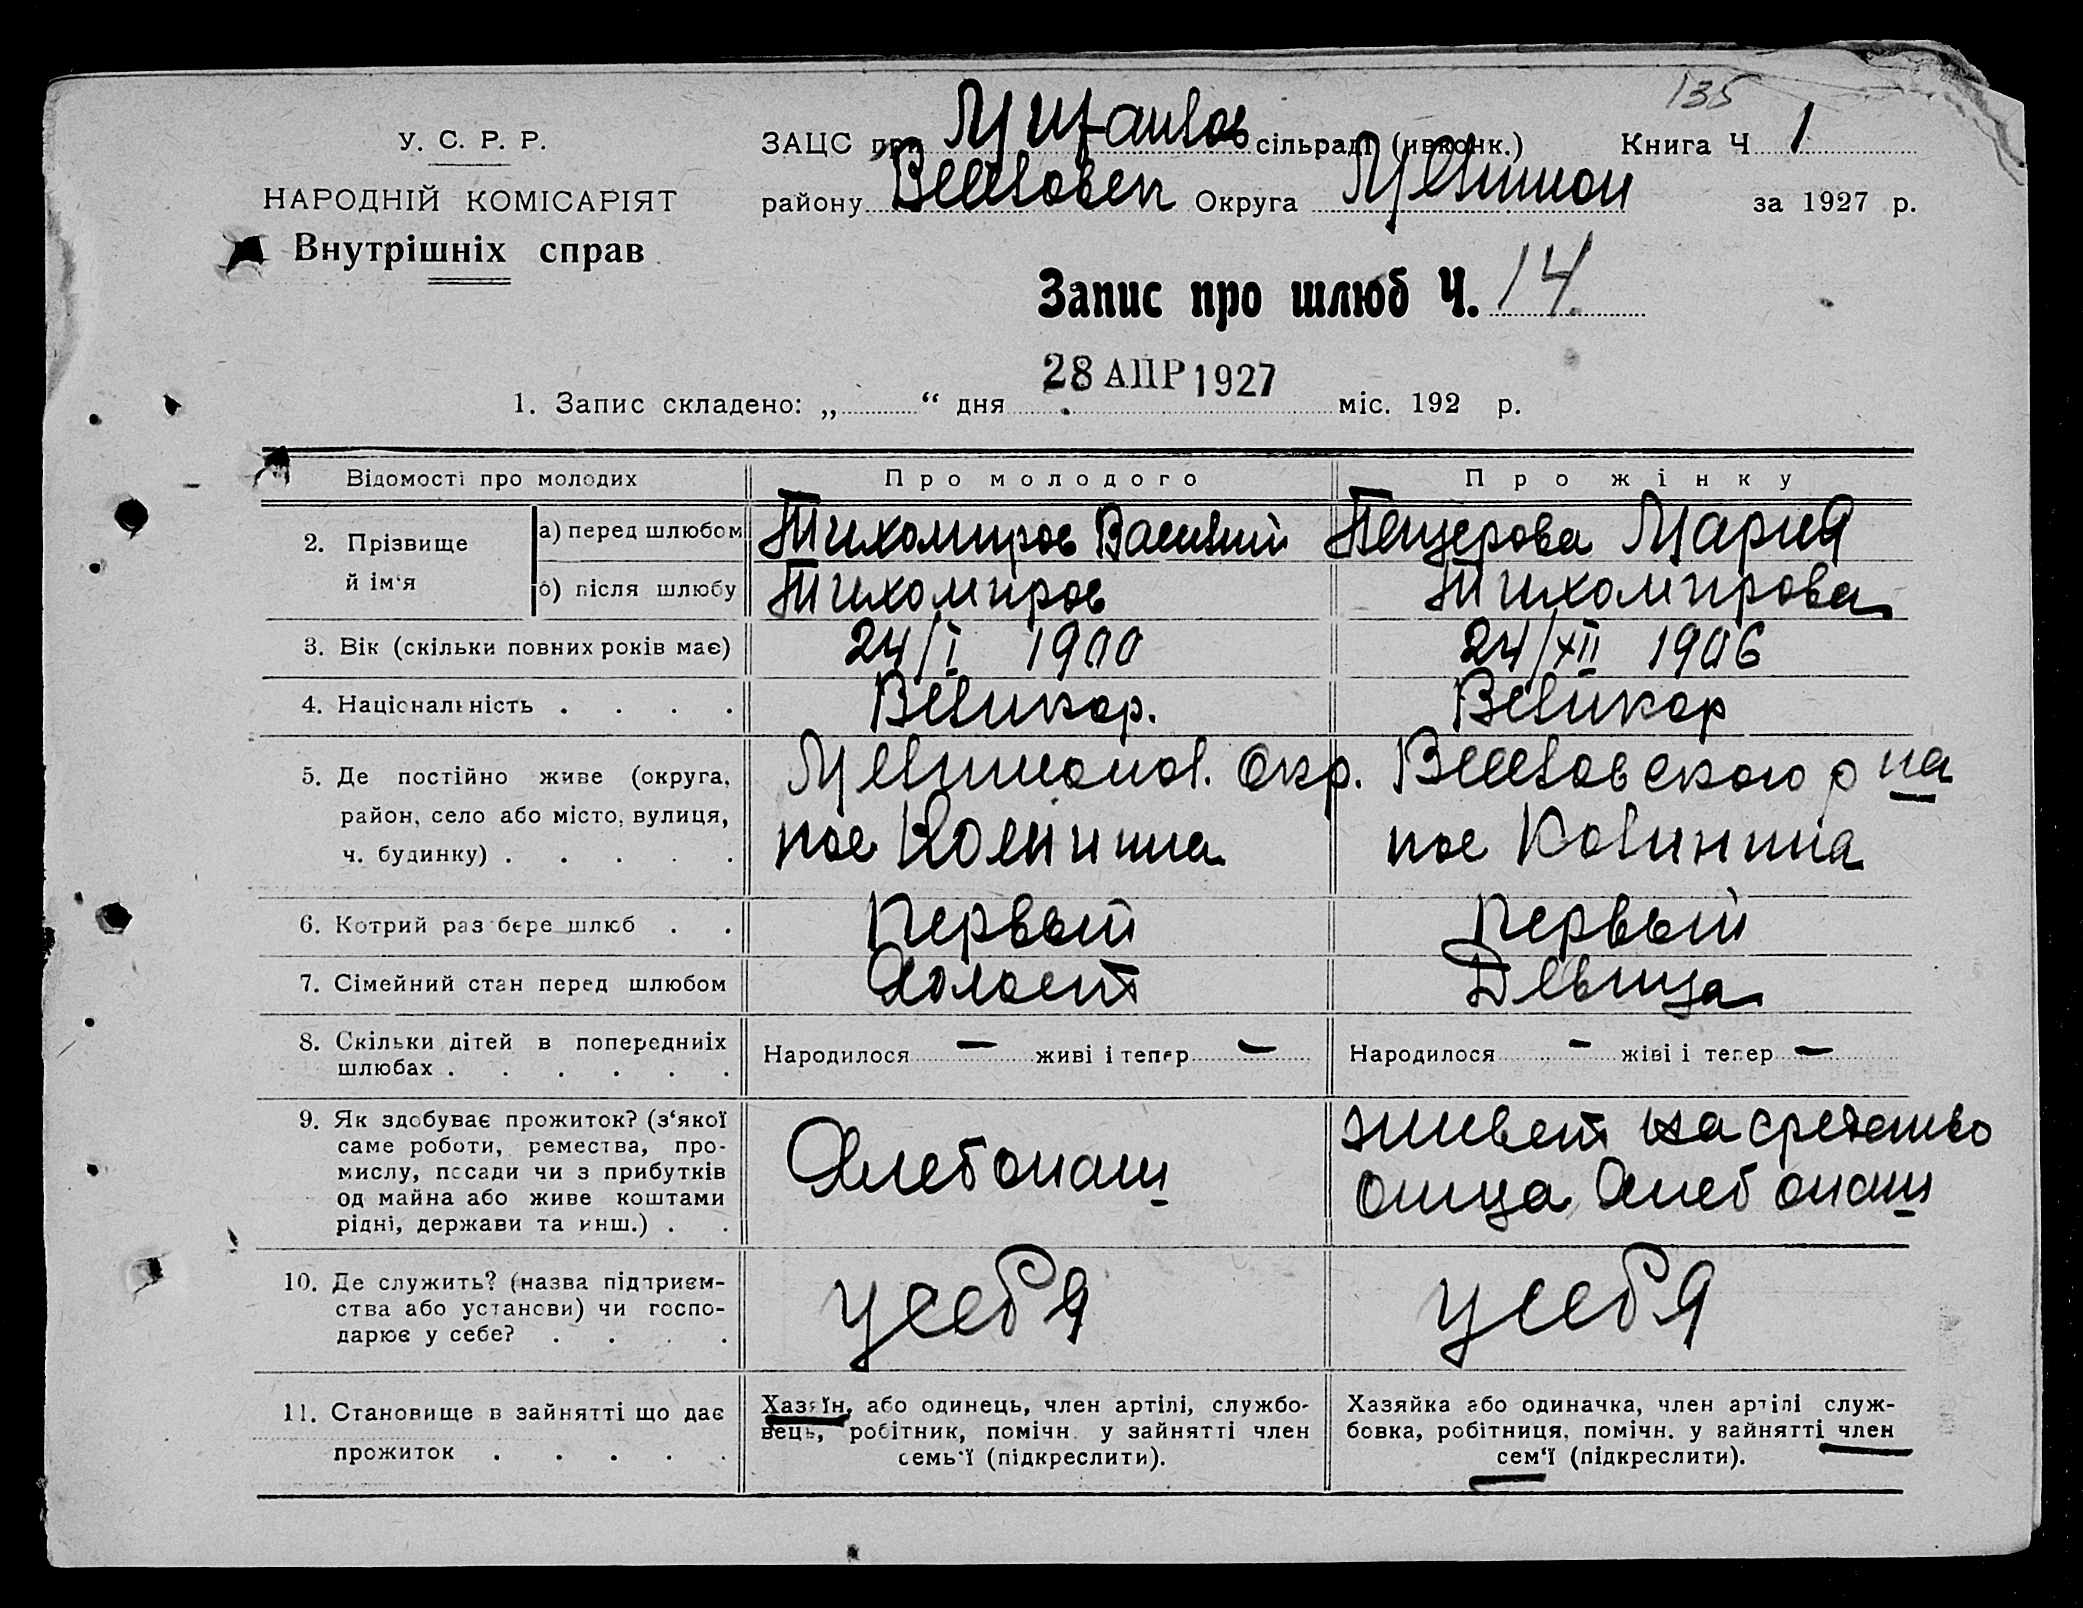 135
У. С. Р. Р.
НАРОДНІЙ КОМІСАРІЯТ
Внутрішніх справ
ЗАЦС при Михайлов сільраді (ивконк.) Книга Ч 1
району Веселовск Округа Мелитоп за 1927 р.
Запис про шлюб Ч. 14.
28 АПР 1927
1. Запис складено: „ “ дня міс. 192 р.
Відомості про молодих Про молодого Про жінку
2. Прізвище й ім‘я
а) перед шлюбом Тихомиров Василий Пещерова Мария
б) після шлюбу Тихомиров Тихомирова
3. Вік (скільки повних років має) 24/I 1900 24/XII 1906
4. Національність . . . . Великор. Великор
5. Де постійно живе (округа, район, село або місто, вулиця, ч. будинку) . . . . .
Мелитопол. окр. Веселовского р на
пос Калинина пос Калинина
6. Котрий раз бере шлюб . . Первый Первый
7. Сімейний стан перед шлюбом Холост Девица
8. Скільки дітей в попередніх шлюбах . . . . . .
Народилося — живі і тепер — Народилося — живі і тепер —
9. Як здобуває прожиток? (з‘якої
саме роботи, ремества, про-
мислу, посади чи з прибутків
од майна або живе коштами
рідні, держави та инш.) . .
Хлебопаш
живет на средство
отца Хлебопаш
10. Де служить? (назва підприєм-
ства або установи) чи госпо-
дарює у себе? . . . .
у себя у себя
11. Становище в зайнятті що дає
прожиток . . . . .
Хазяїн, або одинець, член артілі, службо-
вець, робітник, помічн. у зайнятті член
семь‘ї (підкреслити).
Хазяйка або одиначка, член артілі служ-
бовка, робітниця, помічн. у зайнятті член
сем‘ї (підкреслити).